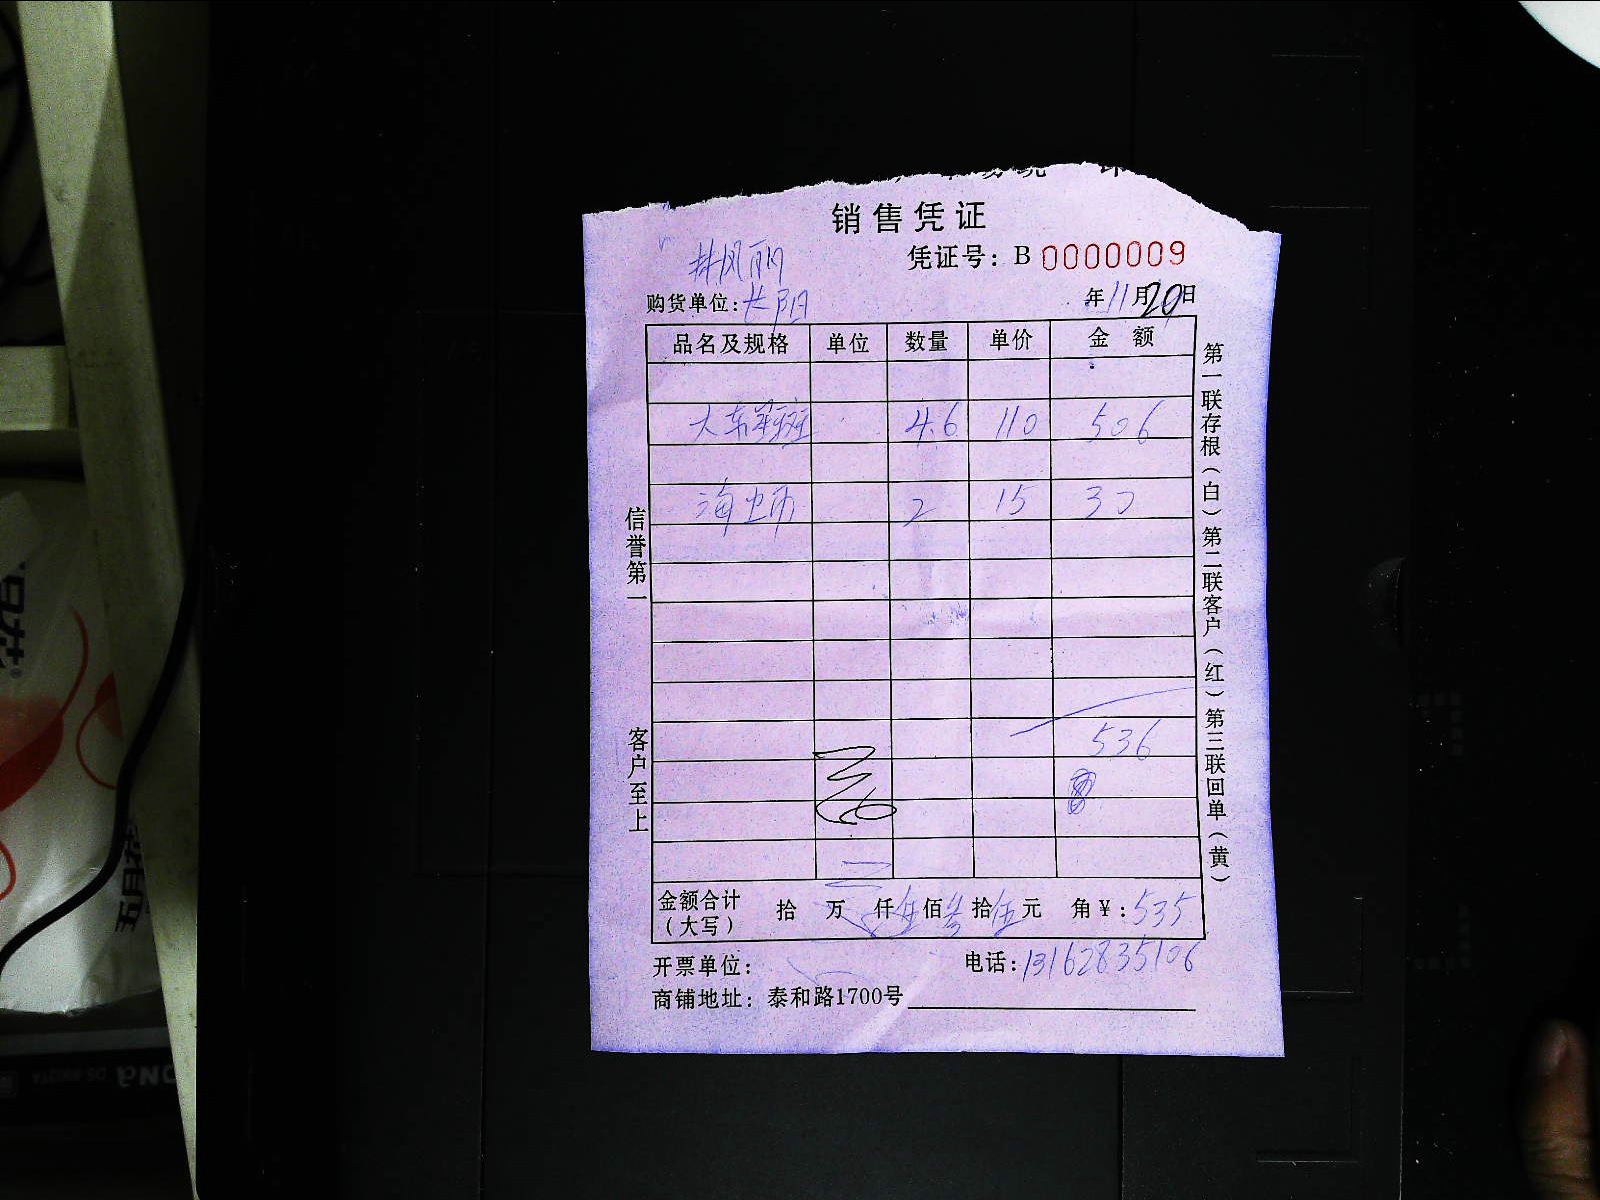 销售凭证
凭证号：B 0000009
购货单位：长阳 年11月20日
品名及规格 单位 数量 单价 金额
大东星斑 4.6 110 506
海 2 15 30
536
金额合计（大写） 拾 万 仟伍佰叁拾伍元 角￥：535
开票单位： 电话：13162835106
商铺地址：泰和路1700号
信誉第一 客户至上
第一联存根（白）第二联客户（红）第三联回单（黄）